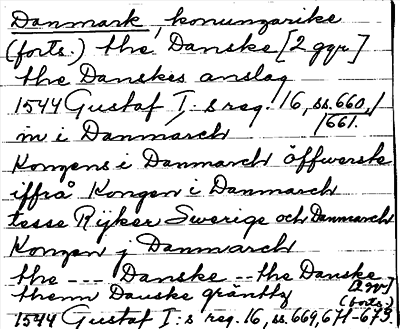 Danmark, konungarike
(forts.) the Danske [2 ggr]
the Danskes anslag
1544 Gustaf I:s reg. 16, ss. 660, /
661.
in i Danmarch
Kongens i Danmarch öffwerste
iffrå Kongen i Danmarch
tesse Rijker Swerige och Danmarch
Kongen j Danmarch
the --- Danske -- the Danske
[2 ggr]
thenn Danske gräntty
(forts.)
1544 Gustaf I:s reg. 16, ss. 669, 671-673.